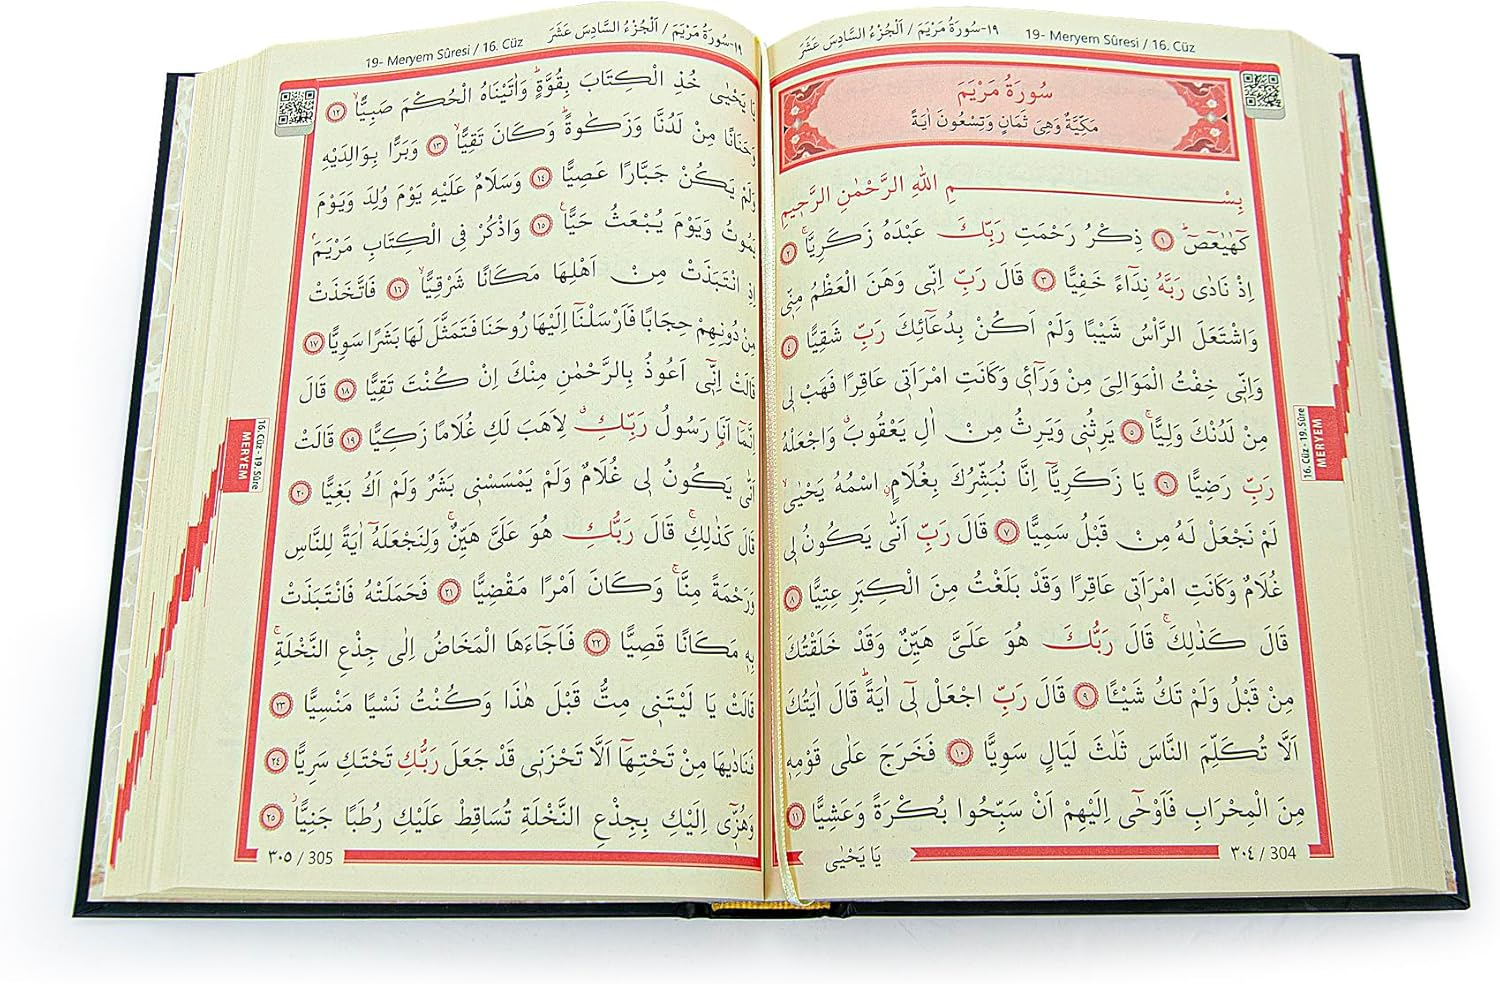 ١٩-سُورَةُ مَرْيَمَ / اَلْجُزْءُ السَّادِسَ عَشَرَ 19- Meryem Sûresi / 16. Cüz
سُورَةُ مَرْيَمَ
مَكِّيَّةٌ وَهِيَ ثَمَانٍ وَتِسْعُونَ اٰيَةً
بِسْمِ اللهِ الرَّحْمٰنِ الرَّحِيمِ
كٓهٰيٰعٓصٓ ﴿١﴾ ذِكْرُ رَحْمَتِ رَبِّكَ عَبْدَهُ زَكَرِيَّاۚ ﴿٢﴾
اِذْ نَادٰى رَبَّهُ نِدَٓاءً خَفِيًّا ﴿٣﴾ قَالَ رَبِّ اِنّ۪ي وَهَنَ الْعَظْمُ مِنّ۪ي
وَاشْتَعَلَ الرَّأْسُ شَيْبًا وَلَمْ اَكُنْ بِدُعَٓائِكَ رَبِّ شَقِيًّا ﴿٤﴾
وَاِنّ۪ي خِفْتُ الْمَوَالِيَ مِنْ وَرَٓائ۪ي وَكَانَتِ امْرَاَت۪ي عَاقِرًا فَهَبْ ل۪ي
مِنْ لَدُنْكَ وَلِيًّاۙ ﴿٥﴾ يَرِثُن۪ي وَيَرِثُ مِنْ اٰلِ يَعْقُوبَۗ وَاجْعَلْهُ
رَبِّ رَضِيًّا ﴿٦﴾ يَا زَكَرِيَّٓا اِنَّا نُبَشِّرُكَ بِغُلَامٍۨ اسْمُهُ يَحْيٰىۙ
لَمْ نَجْعَلْ لَهُ مِنْ قَبْلُ سَمِيًّا ﴿٧﴾ قَالَ رَبِّ اَنّٰى يَكُونُ ل۪ي
غُلَامٌ وَكَانَتِ امْرَاَت۪ي عَاقِرًا وَقَدْ بَلَغْتُ مِنَ الْكِبَرِ عِتِيًّا ﴿٨﴾
قَالَ كَذٰلِكَۚ قَالَ رَبُّكَ هُوَ عَلَيَّ هَيِّنٌ وَقَدْ خَلَقْتُكَ
مِنْ قَبْلُ وَلَمْ تَكُ شَيْـًٔا ﴿٩﴾ قَالَ رَبِّ اجْعَلْ ل۪ٓي اٰيَةًۜ قَالَ اٰيَتُكَ
اَلَّا تُكَلِّمَ النَّاسَ ثَلٰثَ لَيَالٍ سَوِيًّا ﴿١٠﴾ فَخَرَجَ عَلٰى قَوْمِه۪
مِنَ الْمِحْرَابِ فَاَوْحٰٓى اِلَيْهِمْ اَنْ سَبِّحُوا بُكْرَةً وَعَشِيًّا ﴿١١﴾
يَا يَحْيٰى
٣٠٤ / 304
16. Cüz - 19. Sûre
MERYEM
19- Meryem Sûresi / 16. Cüz ١٩-سُورَةُ مَرْيَمَ / اَلْجُزْءُ السَّادِسَ عَشَرَ
يَا يَحْيٰى خُذِ الْكِتَابَ بِقُوَّةٍۜ وَاٰتَيْنَاهُ الْحُكْمَ صَبِيًّاۙ ﴿١٢﴾
وَحَنَانًا مِنْ لَدُنَّا وَزَكٰوةًۜ وَكَانَ تَقِيًّاۙ ﴿١٣﴾ وَبَرًّا بِوَالِدَيْهِ
وَلَمْ يَكُنْ جَبَّارًا عَصِيًّا ﴿١٤﴾ وَسَلَامٌ عَلَيْهِ يَوْمَ وُلِدَ وَيَوْمَ
يَمُوتُ وَيَوْمَ يُبْعَثُ حَيًّاۚ ﴿١٥﴾ وَاذْكُرْ فِي الْكِتَابِ مَرْيَمَۢ
اِذِ انْتَبَذَتْ مِنْ اَهْلِهَا مَكَانًا شَرْقِيًّاۙ ﴿١٦﴾ فَاتَّخَذَتْ
مِنْ دُونِهِمْ حِجَابًا فَاَرْسَلْنَٓا اِلَيْهَا رُوحَنَا فَتَمَثَّلَ لَهَا بَشَرًا سَوِيًّا ﴿١٧﴾
قَالَتْ اِنّ۪ٓي اَعُوذُ بِالرَّحْمٰنِ مِنْكَ اِنْ كُنْتَ تَقِيًّا ﴿١٨﴾ قَالَ
اِنَّمَٓا اَنَا۬ رَسُولُ رَبِّكِۗ لِاَهَبَ لَكِ غُلَامًا زَكِيًّا ﴿١٩﴾ قَالَتْ
اَنّٰى يَكُونُ ل۪ي غُلَامٌ وَلَمْ يَمْسَسْن۪ي بَشَرٌ وَلَمْ اَكُ بَغِيًّا ﴿٢٠﴾
قَالَ كَذٰلِكِۚ قَالَ رَبُّكِ هُوَ عَلَيَّ هَيِّنٌۚ وَلِنَجْعَلَهُٓ اٰيَةً لِلنَّاسِ
وَرَحْمَةً مِنَّاۚ وَكَانَ اَمْرًا مَقْضِيًّا ﴿٢١﴾ فَحَمَلَتْهُ فَانْتَبَذَتْ
بِه۪ مَكَانًا قَصِيًّا ﴿٢٢﴾ فَاَجَٓاءَهَا الْمَخَاضُ اِلٰى جِذْعِ النَّخْلَةِۚ
قَالَتْ يَا لَيْتَن۪ي مِتُّ قَبْلَ هٰذَا وَكُنْتُ نَسْيًا مَنْسِيًّا ﴿٢٣﴾
فَنَادٰيهَا مِنْ تَحْتِهَٓا اَلَّا تَحْزَن۪ي قَدْ جَعَلَ رَبُّكِ تَحْتَكِ سَرِيًّا ﴿٢٤﴾
وَهُزّ۪ٓي اِلَيْكِ بِجِذْعِ النَّخْلَةِ تُسَاقِطْ عَلَيْكِ رُطَبًا جَنِيًّاۘ ﴿٢٥﴾
٣٠٥ / 305
16. Cüz - 19. Sûre
MERYEM